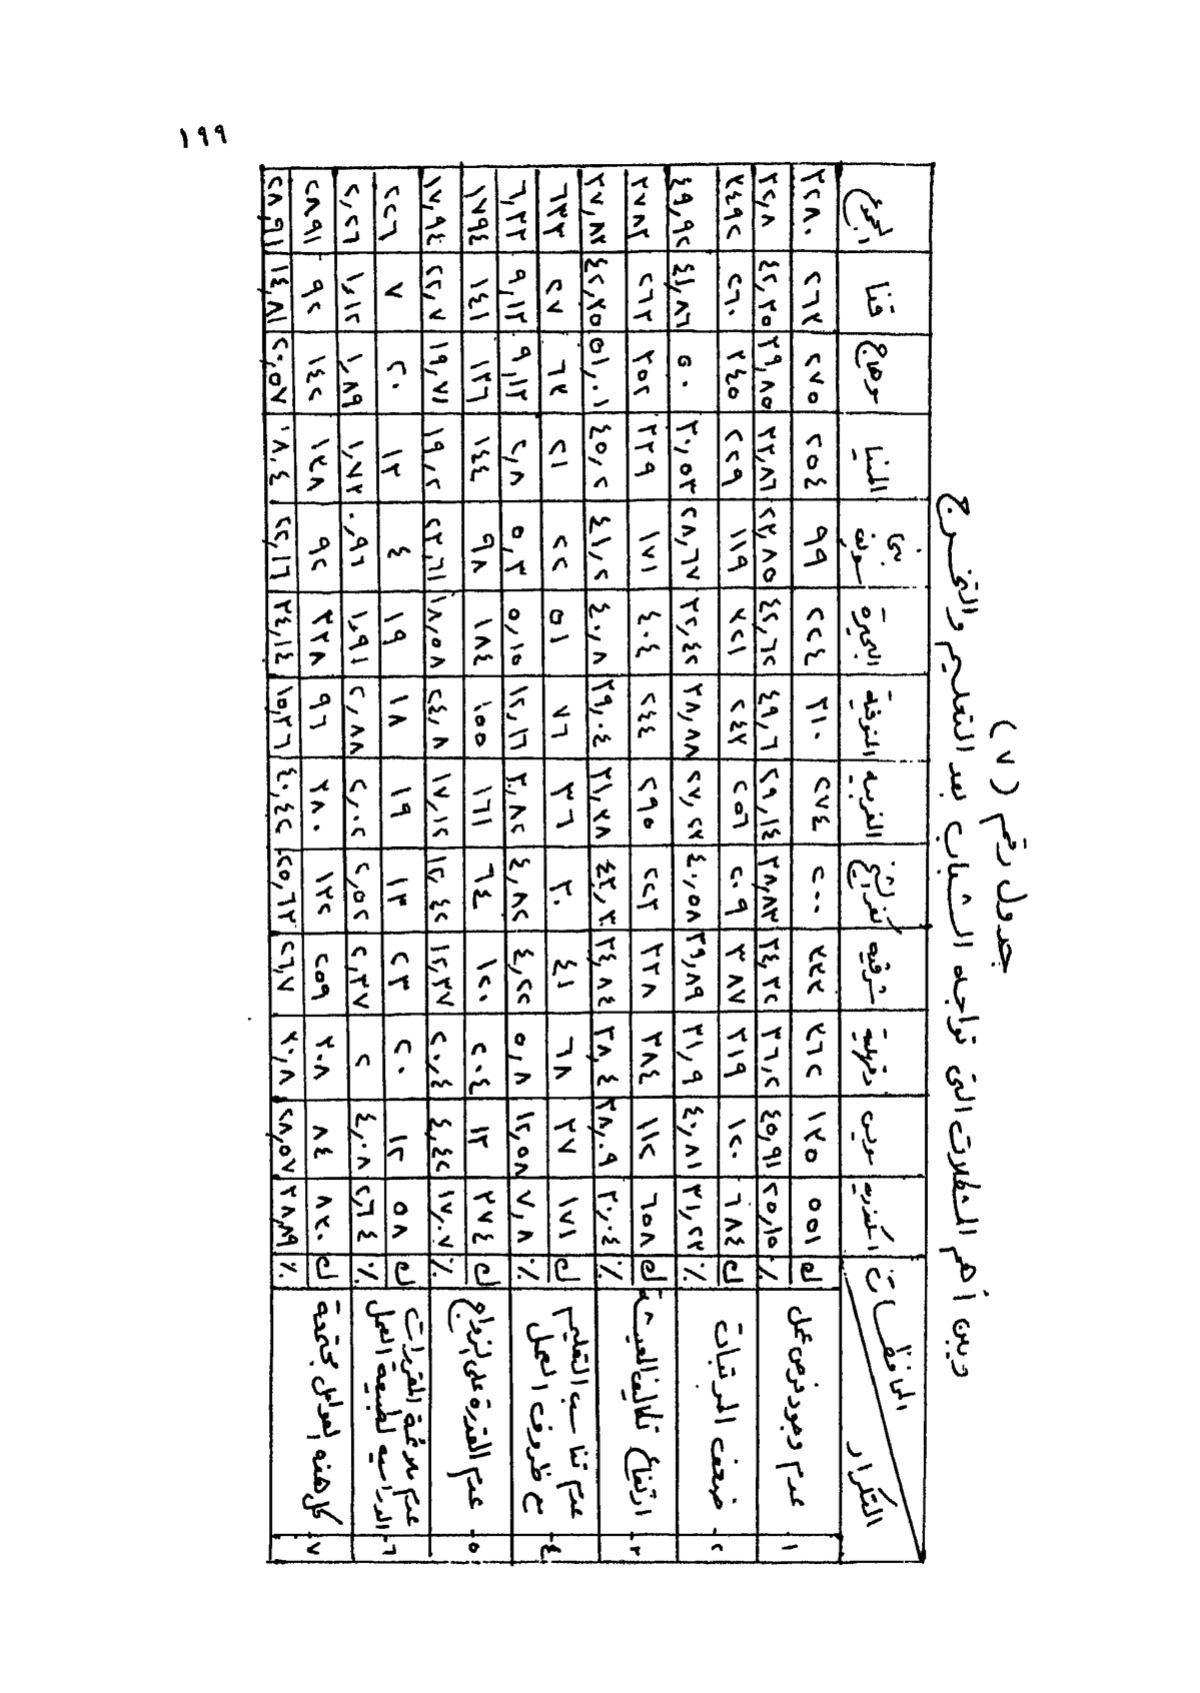 ١٩٩
جدول رقم (٧)
يبين أهم المشكلات التى تواجه الشباب بعد التعليم والتخرج
المحافظات / التكرار | اسكندرية | سويس | دقهلية | شرقية | كفر الشيخ | الغربية | المنوفية | البحيرة | بنى سويف | المنيا | سوهاج | قنا | المجموع
١ - عدم وجود فرص عمل | ك | ٥٥١ | ١٣٥ | ٣٦٢ | ٣٣٣ | ٢٠٠ | ٢٧٤ | ٣١٠ | ٢٢٤ | ٩٩ | ٢٥٤ | ٢٧٥ | ٢٦٣ | ٣٢٨٠
٪ | ٢٥,١٥ | ٤٥,٩١ | ٣٦,٢ | ٣٤,٣٢ | ٣٨,٨٣ | ٢٩,١٤ | ٤٩,٦ | ٤٢,٦٢ | ٢٣,٨٥ | ٣٣,٨٦ | ٣٩,٨٥ | ٤٢,٣٥ | ٣٢,٨
٢ - ضعف المرتبات | ك | ٦٨٤ | ١٢٠ | ٣١٩ | ٣٨٧ | ٢٠٩ | ٢٥٦ | ٢٤٣ | ٣٢١ | ١١٩ | ٢٢٩ | ٣٤٥ | ٢٦٠ | ٣٤٩٢
٪ | ٣١,٢٣ | ٤٠,٨١ | ٣١,٩ | ٣٩,٨٩ | ٤٠,٥٨ | ٢٧,٢٣ | ٣٨,٨٨ | ٣٢,٤٢ | ٢٨,٦٧ | ٣٠,٥٣ | ٥٠ | ٤١,٨٦ | ٤٩,٩٢
٣ - ارتفاع تكاليف المعيشة | ك | ٦٥٨ | ١١٢ | ٣٨٤ | ٣٣٨ | ٢٢٣ | ٢٩٥ | ٢٤٤ | ٤٠٤ | ١٧١ | ٣٣٩ | ٣٥٢ | ٢٦٣ | ٣٧٨٣
٪ | ٣٠,٠٤ | ٣٨,٠٩ | ٣٨,٤ | ٣٤,٨٤ | ٤٣,٣ | ٣١,٣٨ | ٣٩,٠٤ | ٤٠,٨ | ٤١,٢ | ٤٥,٢ | ٥١,٠١ | ٤٢,٣٥ | ٣٧,٨٣
٤ - عدم تناسب التعليم مع ظروف العمل | ك | ١٧١ | ٣٧ | ٦٨ | ٤١ | ٣٠ | ٣٦ | ٧٦ | ٥١ | ٢٢ | ٢١ | ٦٣ | ٢٧ | ٦٣٣
٪ | ٧,٨ | ١٢,٥٨ | ٥,٨ | ٤,٢٢ | ٤,٨٢ | ٣,٨٢ | ١٢,١٦ | ٥,١٥ | ٥,٣ | ٢,٨ | ٩,١٣ | ٩,١٣ | ٦,٣٣
٥ - عدم القدرة على الزواج | ك | ٣٧٤ | ١٣ | ٢٠٤ | ١٢٠ | ٦٤ | ١٦١ | ١٥٥ | ١٨٤ | ٩٨ | ١٤٤ | ١٣٦ | ١٤١ | ١٧٩٤
٪ | ١٧,٠٧ | ٤,٤٢ | ٢٠,٤ | ١٢,٣٧ | ١٢,٤٢ | ١٧,١٢ | ٢٤,٨ | ١٨,٥٨ | ٢٣,٦١ | ١٩,٢ | ١٩,٧١ | ٢٢,٧ | ١٧,٩٤
٦ - عدم ملائمة المقررات الدراسية لطبيعة العمل | ك | ٥٨ | ١٢ | ٢٠ | ٢٣ | ١٣ | ١٩ | ١٨ | ١٩ | ٤ | ١٣ | ٢٠ | ٧ | ٢٢٦
٪ | ٢,٦٤ | ٤,٠٨ | ٢ | ٢,٣٧ | ٢,٥٢ | ٢,٠٢ | ٢,٨٨ | ١,٩١ | ٠,٩٦ | ١,٧٣ | ١,٨٩ | ١,١٢ | ٢,٢٦
٧ - كل هذه العوامل مجتمعة | ك | ٨٢٠ | ٨٤ | ٣٠٨ | ٢٥٩ | ١٣٢ | ٣٨٠ | ٩٦ | ٣٣٨ | ٩٢ | ١٣٨ | ١٤٢ | ٩٢ | ٢٨٩١
٪ | ٣٨,٨٩ | ٢٨,٥٧ | ٣٠,٨ | ٢٦,٧ | ٢٥,٦٣ | ٤٠,٤٢ | ١٥,٣٦ | ٣٤,١٤ | ٢٢,١٦ | ١٨,٤ | ٢٠,٥٧ | ١٤,٨١ | ٢٨,٩١